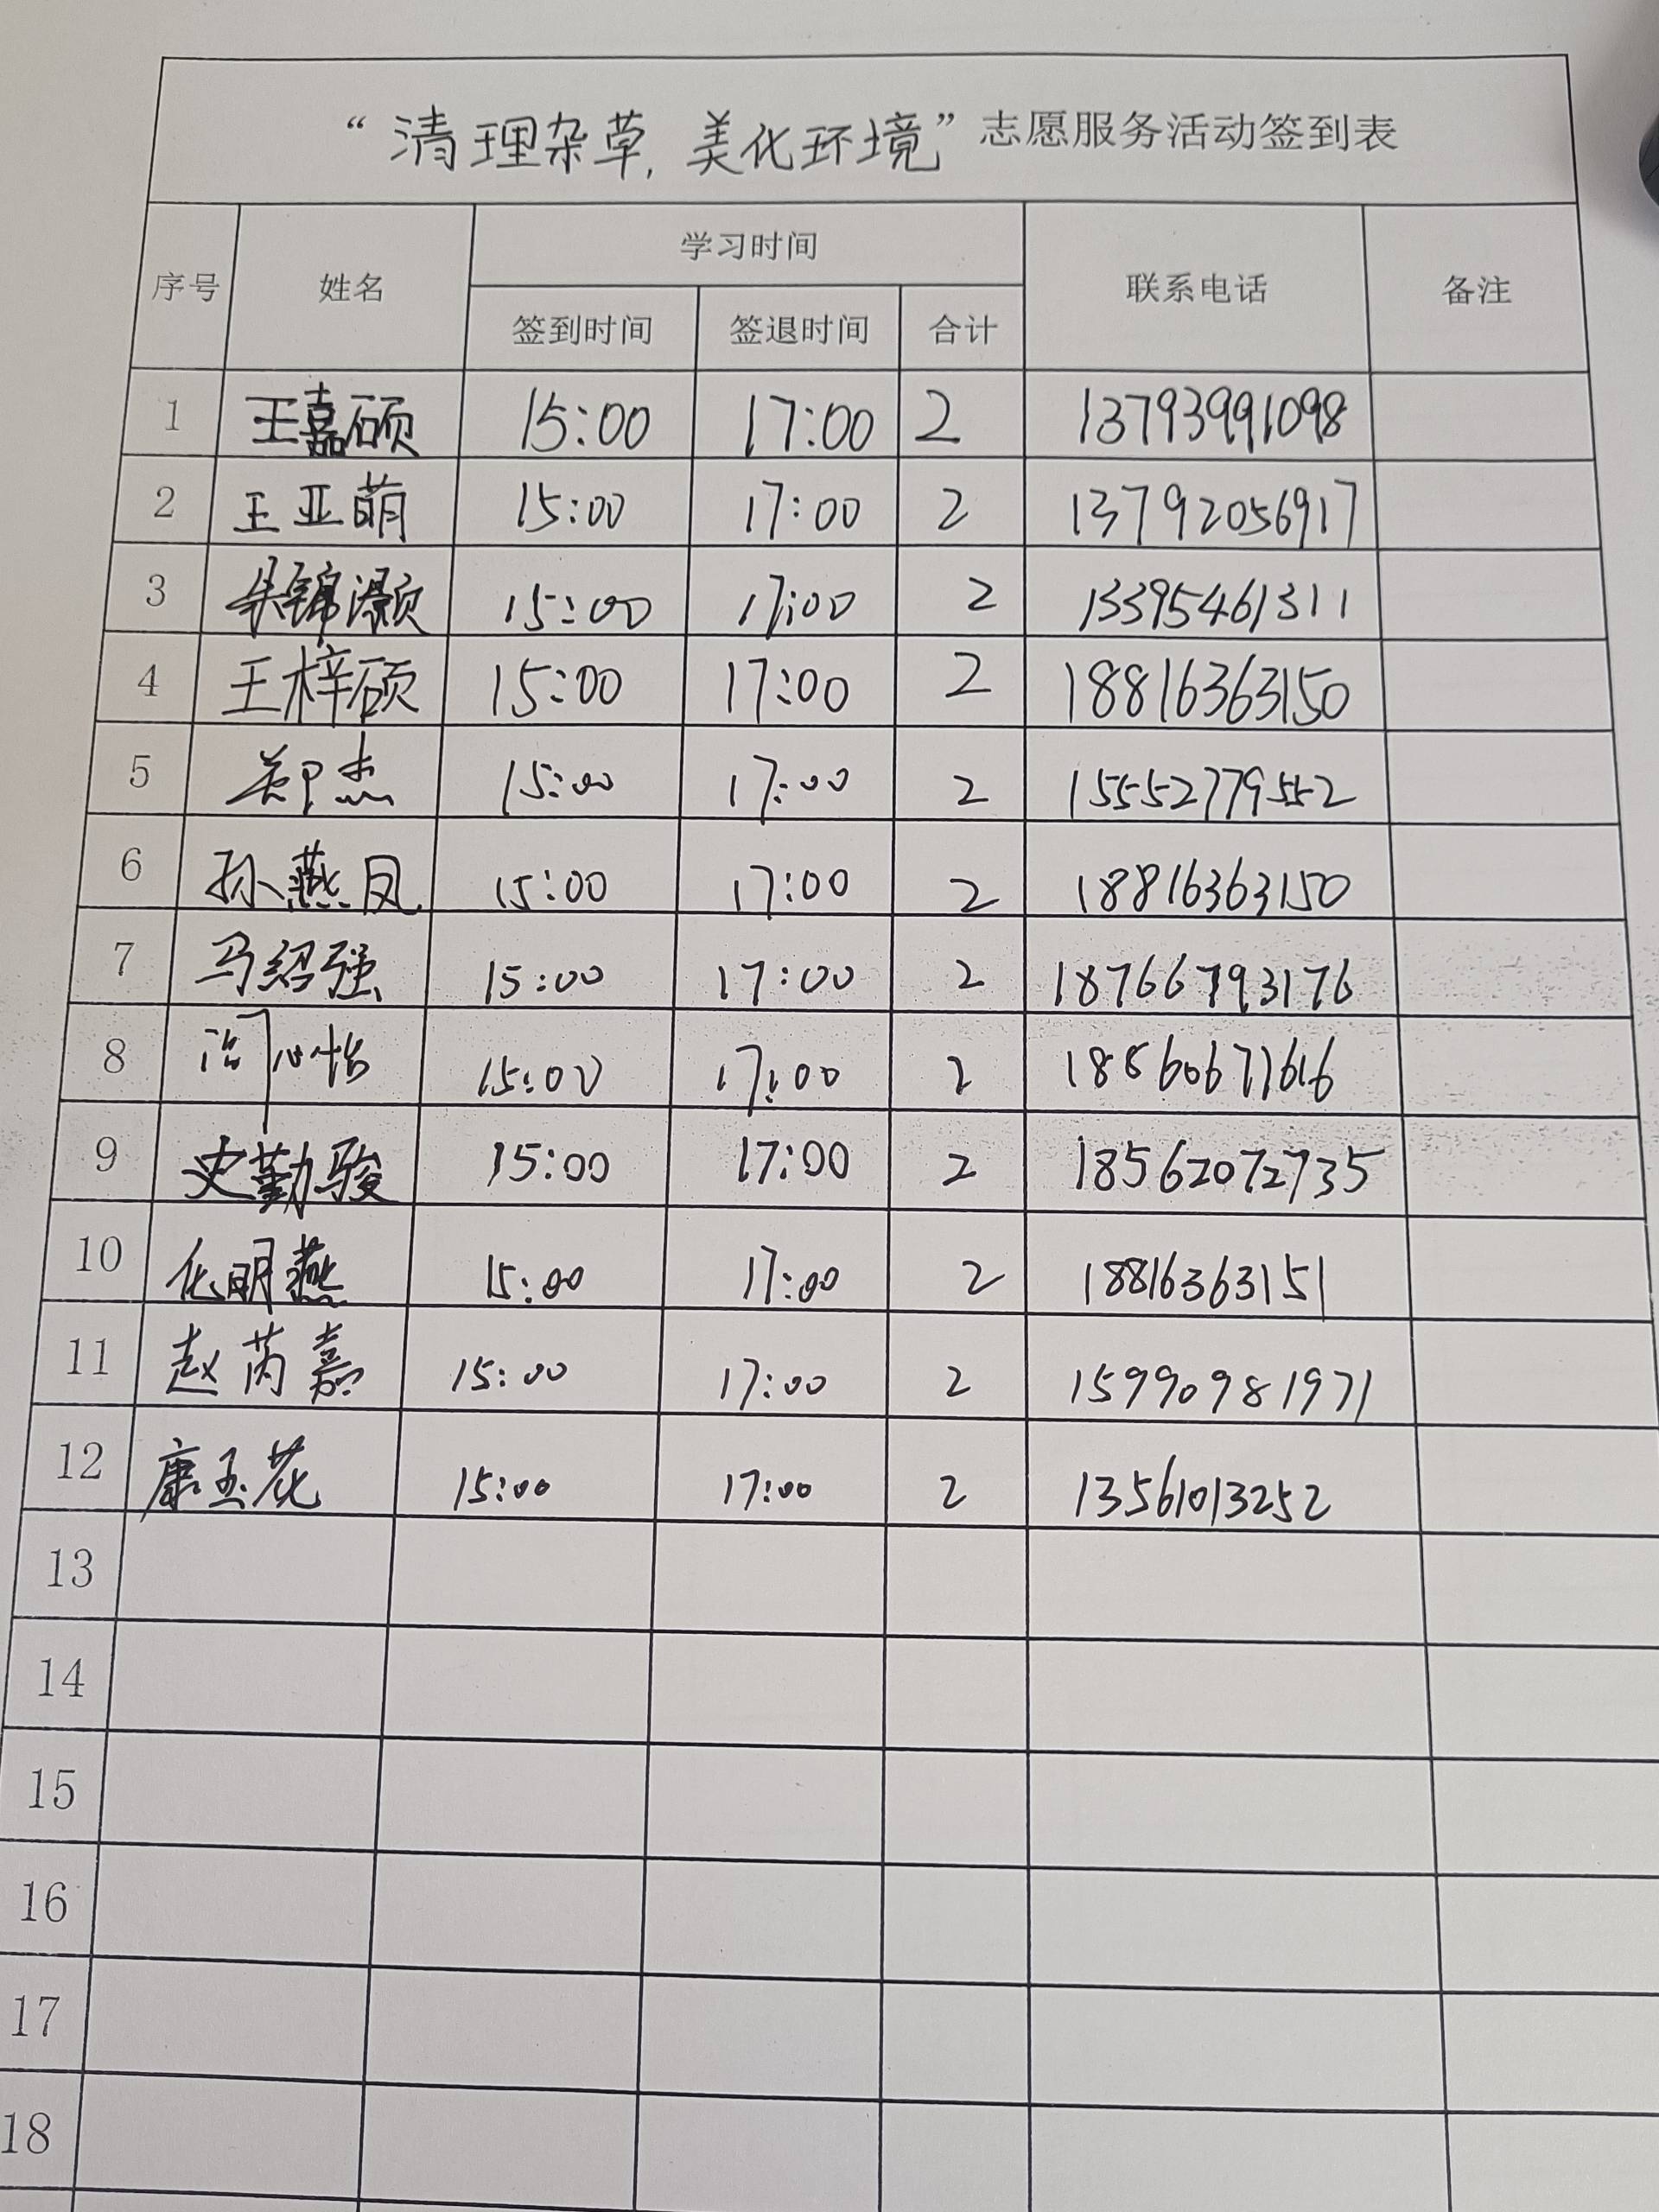 “清理杂草,美化环境”志愿服务活动签到表
序号 姓名 学习时间 联系电话 备注
签到时间 签退时间 合计
1 王嘉硕 15:00 17:00 2 13793991098
2 王亚萌 15:00 17:00 2 13792056917
3 朱锦灏 15:00 17:00 2 13395461311
4 王梓硕 15:00 17:00 2 18816363150
5 郑杰 15:00 17:00 2 15552779552
6 孙燕凤 15:00 17:00 2 18816363150
7 马绍强 15:00 17:00 2 18766793176
8 心怡 15:00 17:00 2 18860671616
9 史勤骏 15:00 17:00 2 18562072735
10 化明燕 15:00 17:00 2 18816363151
11 赵芮嘉 15:00 17:00 2 15990981971
12 康玉花 15:00 17:00 2 13561013252
13
14
15
16
17
18